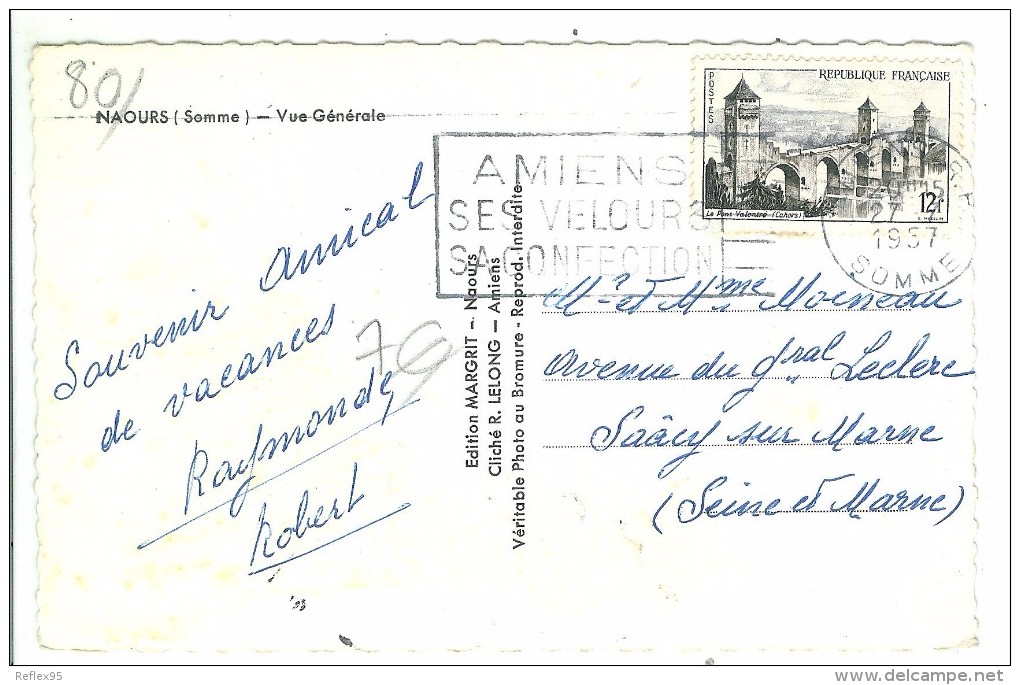 80/
NAOURS (Somme) — Vue Générale
POSTES
REPUBLIQUE FRANÇAISE
Le Pont Valentré (Cahors)
12f
AMIENS
SES VELOURS
SA CONFECTION
15
27
1957
SOMME
Souvenir amical
de vacances
Raymonde,
Robert
79
Edition MARGRIT — Naours
Cliché R. LELONG — Amiens
Véritable Photo au Bromure - Reprod. Interdite
Mr et Mme Moineau
Avenue du Gral Leclerc
Saâcy sur Marne
(Seine et Marne)
Reflex95
delcampe.net